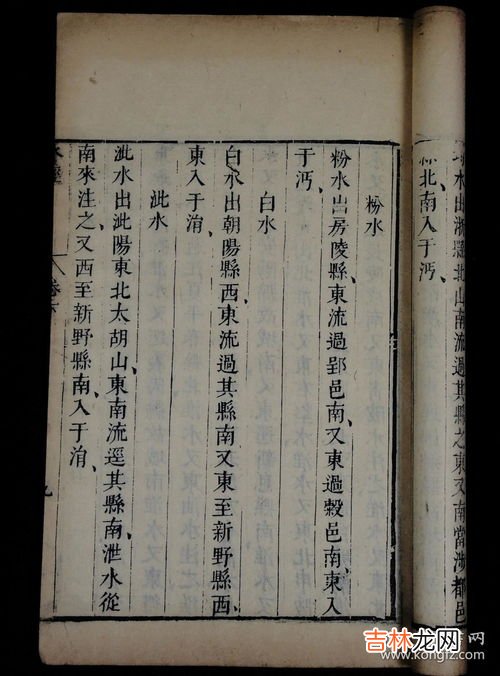 水出淅縣北山南流過其縣之東又南當涉都邑
北南入于沔
粉水
粉水出房陵縣東流過郢邑南又東過穀邑南東入
于沔
白水
白水出朝陽縣西東流過其縣南又東至新野縣西
東入于淯
泚水
泚水出泚陽東北太胡山東南流逕其縣南泄水從
南來注之又西至新野縣南入于淯
水經
卷六
九
吉林龙网
www.kongfz.com